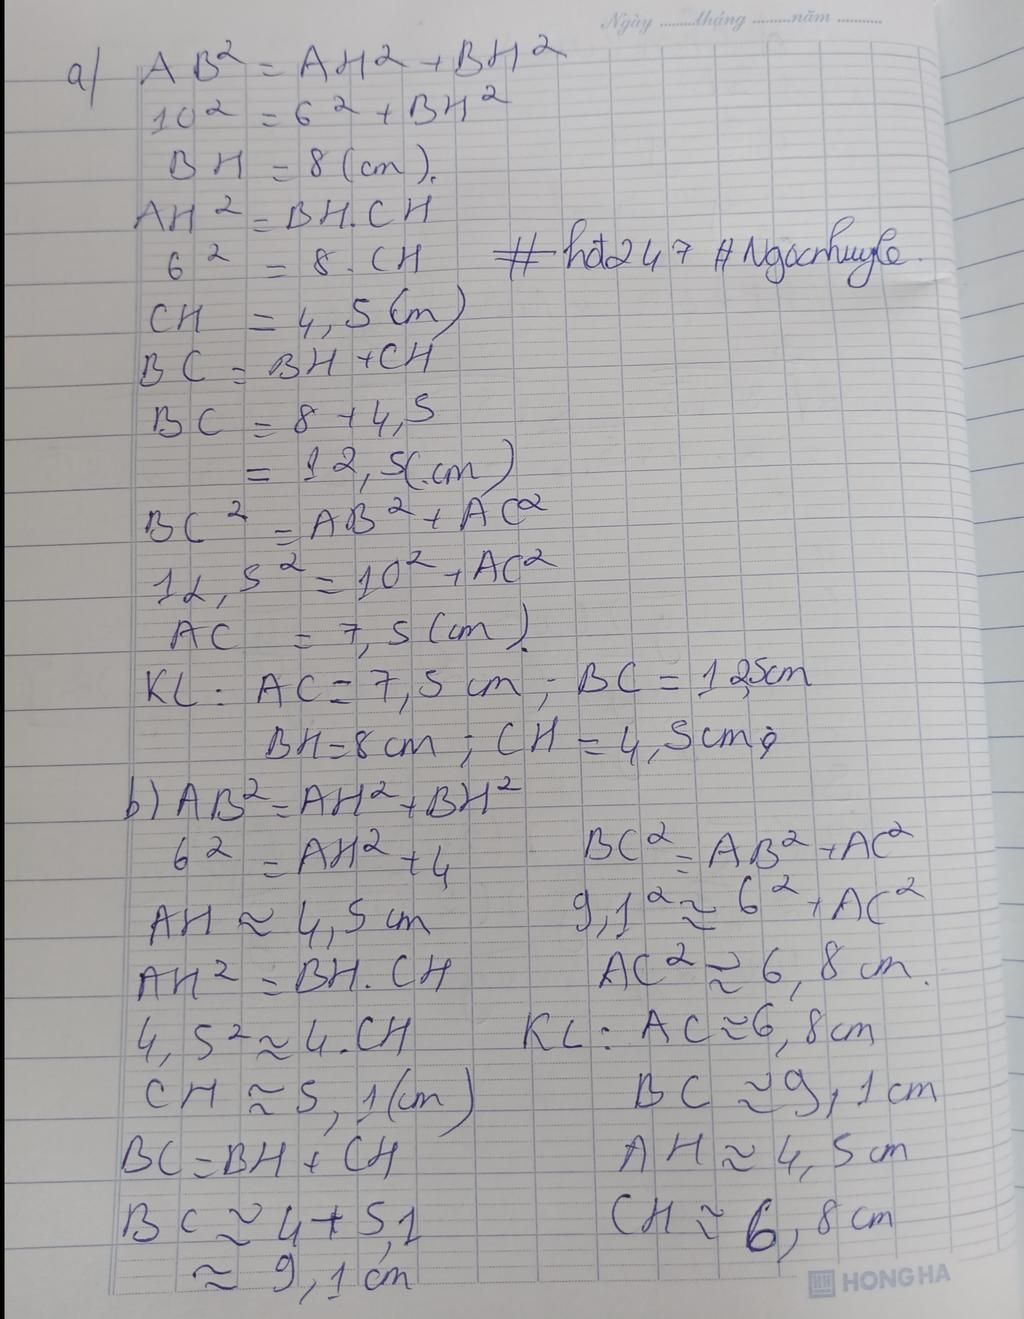 Ngày ........tháng ........năm ..........
a) AB² = AH² + BH²
10² = 6² + BH²
BH = 8 (cm).
AH² = BH.CH
6² = 8.CH #hđ247 #Ngocnhuyle.
CH = 4,5 (cm)
BC = BH + CH
BC = 8 + 4,5
= 12,5(cm)
BC² = AB² + AC²
12,5² = 10² + AC²
AC = 7,5 (cm).
KL: AC = 7,5 cm; BC = 12,5cm
BH = 8 cm; CH = 4,5cm.
b) AB² = AH² + BH²
6² = AH² + 4
AH ≈ 4,5 cm
AH² = BH.CH
4,5² ≈ 4.CH
CH ≈ 5,1(cm)
BC = BH + CH
BC ≈ 4 + 5,1
≈ 9,1 cm
BC² = AB² + AC²
9,1² ≈ 6² + AC²
AC² ≈ 6,8 cm.
KL: AC ≈ 6,8 cm
BC ≈ 9,1 cm
AH ≈ 4,5 cm
CH ≈ 6,8 cm
HONG HA